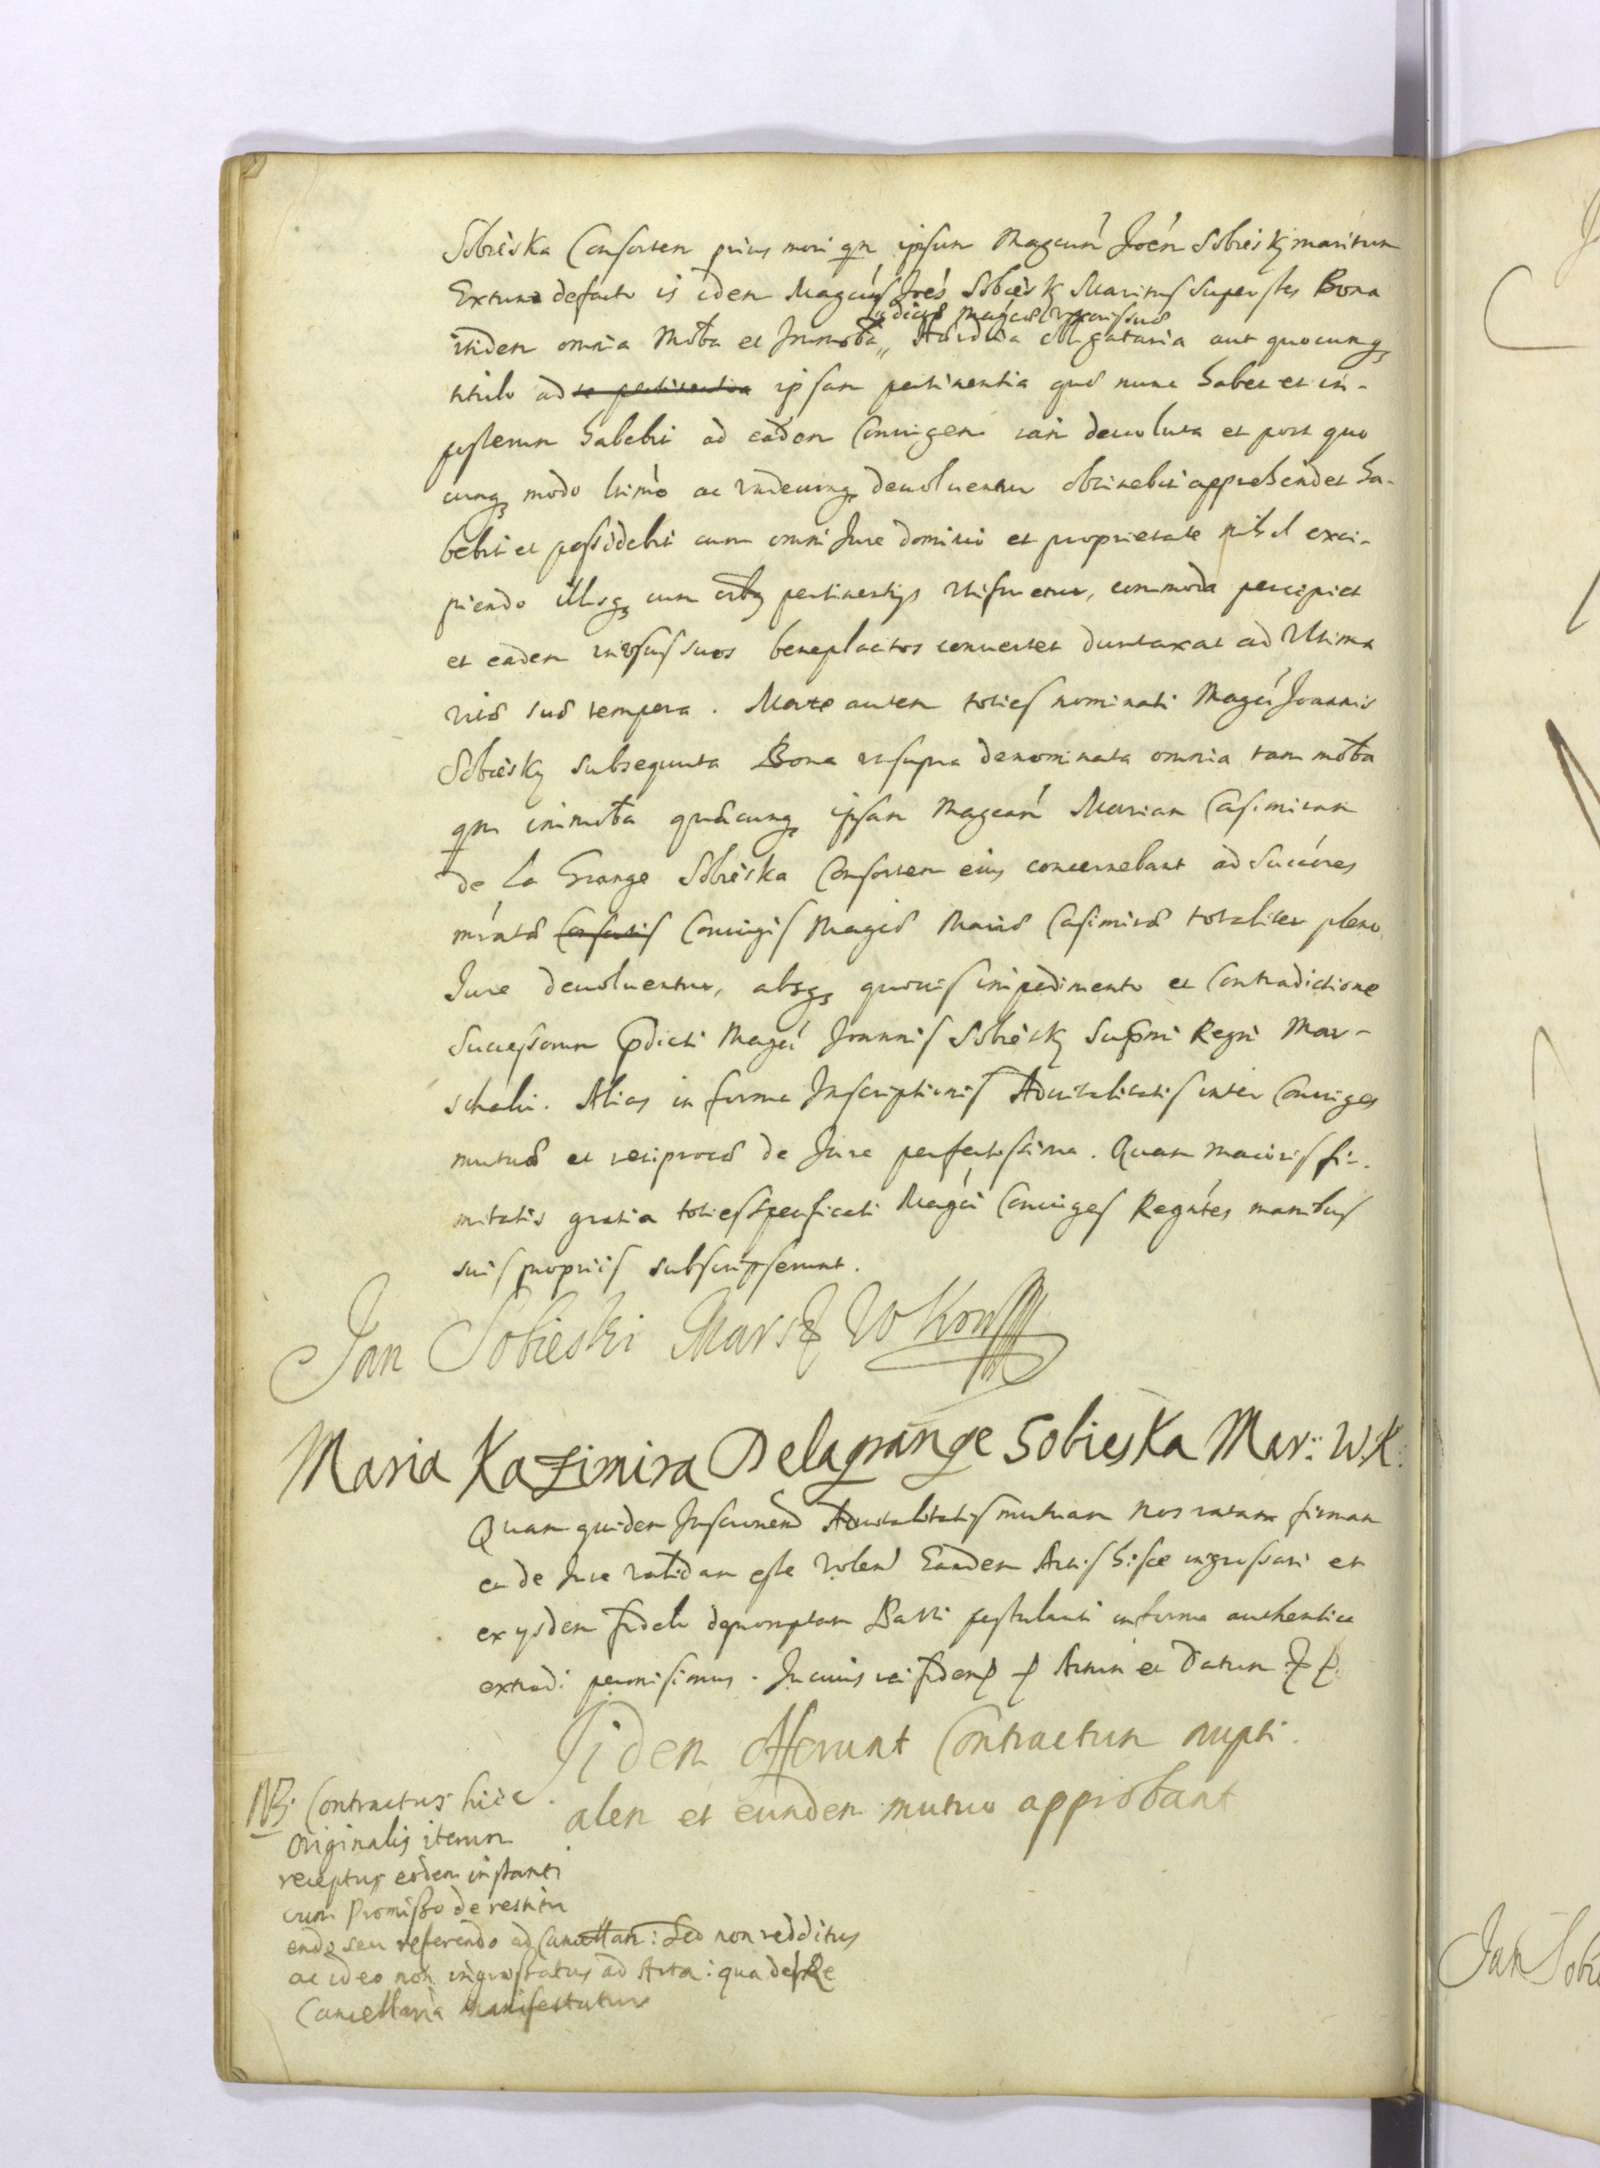 Sobieska Consorten prius mori qm ipsum Magcum Joēn Sobiesky maritum
Extunc defacto is idem Magcus Joēs Sobiesky Maritus superstes Bona
dictæ Magcæ Uxoris suæ
itidem omnia Mōbā et Immobā,, hæredia obligatoria aut quocunqꝫ
titulo ad se pertinentia ipsam pertinentia quæ nunc habet et in-
posterum habebit ad eadem Coniugem iam deuoluta et post quo
cunqꝫ modo ltimo ac undecunqꝫ deuoluentur obtinebit apprehendet ha-
bebit et possidebit cum omni Jure dominio et proprietate nihil exci-
piendo illisqꝫ cum oībꝫ pertinentijs utifruetur, commoda percipiet
et eadem in usus suos beneplacitos conuertet duntaxat ad Vltima
vitæ suæ tempora. Morte autem toties nominati Magci Joannis
Sobiesky subsequuta Bona ut supra denominata omnia tam mōba
qm immōba quæcunqꝫ ipsam Magcam Mariam Casimiram
de La Grange Sobieska Consortem eius concernebant ad Succres
mratæ Consortis Coniugis Magcæ Mariæ Casimiræ totaliter pleno
Jure deuoluentur, absqꝫ quouis impedimento et Contradictione
Successorum pdicti Magci Joannis Sobiesky Supmi Regni Mar-
schalci. Alias in forma Inscriptionis Aduitalitatis inter Coniuges
mutuæ et reciprocæ de Jure perfectissima. Quam maioris fir-
mitatis gratia toties specificati Magci Coniuges Regntes manibus
suis propriis subscripserunt.
Jan Sobieski Marsz W Kor
Maria Kazimira Delagrange Sobieska Mar: W.K:
Quam quidem Inscrionem Aduitalitatis mutuam nos ratam firmam
et de Jure validam esse volen Eandem Actis hisce ingrossari et
ex ijsdem fideli depromptam Parti postulanti in forma authentica
extradi permisimus. In cuius rei fidem Actum et Datum
Jidem Offerunt Contractum nupti
alem et eundem mutuo approbant
NB. Contractus hicce
Originalis iterum
receptus eodem instanti
cum Promisso de restitu
endo seu referendo ad Cancellar: Sed non redditus
ac ideo non ingrossatus ad Acta: qua de Re
Cancellaria manifestatur
Jan Sobie